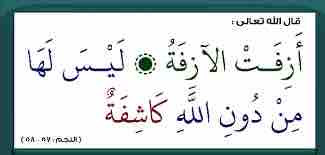 قال الله تعالى :
أَزِفَتْ الْآزِفَةُ لَيْسَ لَهَا
مِنْ دُونِ اللَّهِ كَاشِفَةٌ
( النجم : ٥٧ - ٥٨ )